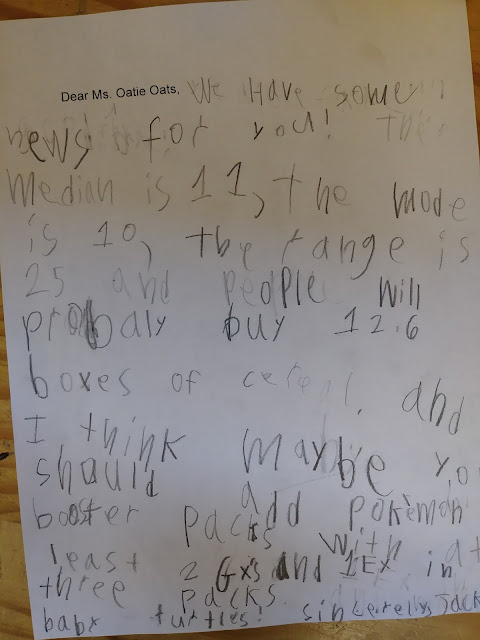 Dear Ms. Oatie Oats, We Have some
news for you! The
median is 11, the mode
is 10, the range is
25 and people will
probaly buy 12.6
boxes of cereal. and
I think maybe you
should add Pokémon
booster packs with at
least 2 GX's and 1EX in
three packs.
baby turtles! sincerelly, Jack